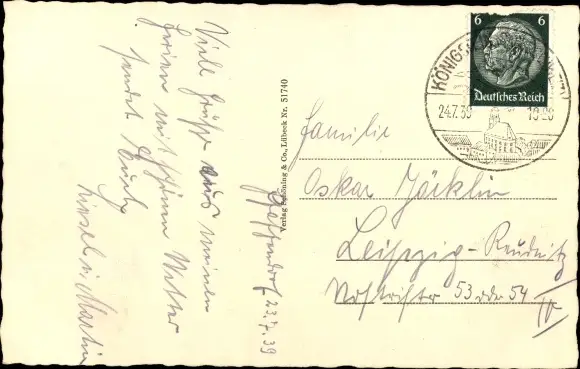 Viele Grüße aus meinen
Ferien mit schönem Wetter
sendet Euch
Martin
Pfaffendorf 23.7.39
Verlag Schöning & Co., Lübeck Nr. 51740
6 6
Deutsches Reich
KÖNIGS
24.7.39
Familie
Oskar Jäcklin
Leipzig-Reudnitz
53 oder 54
IV